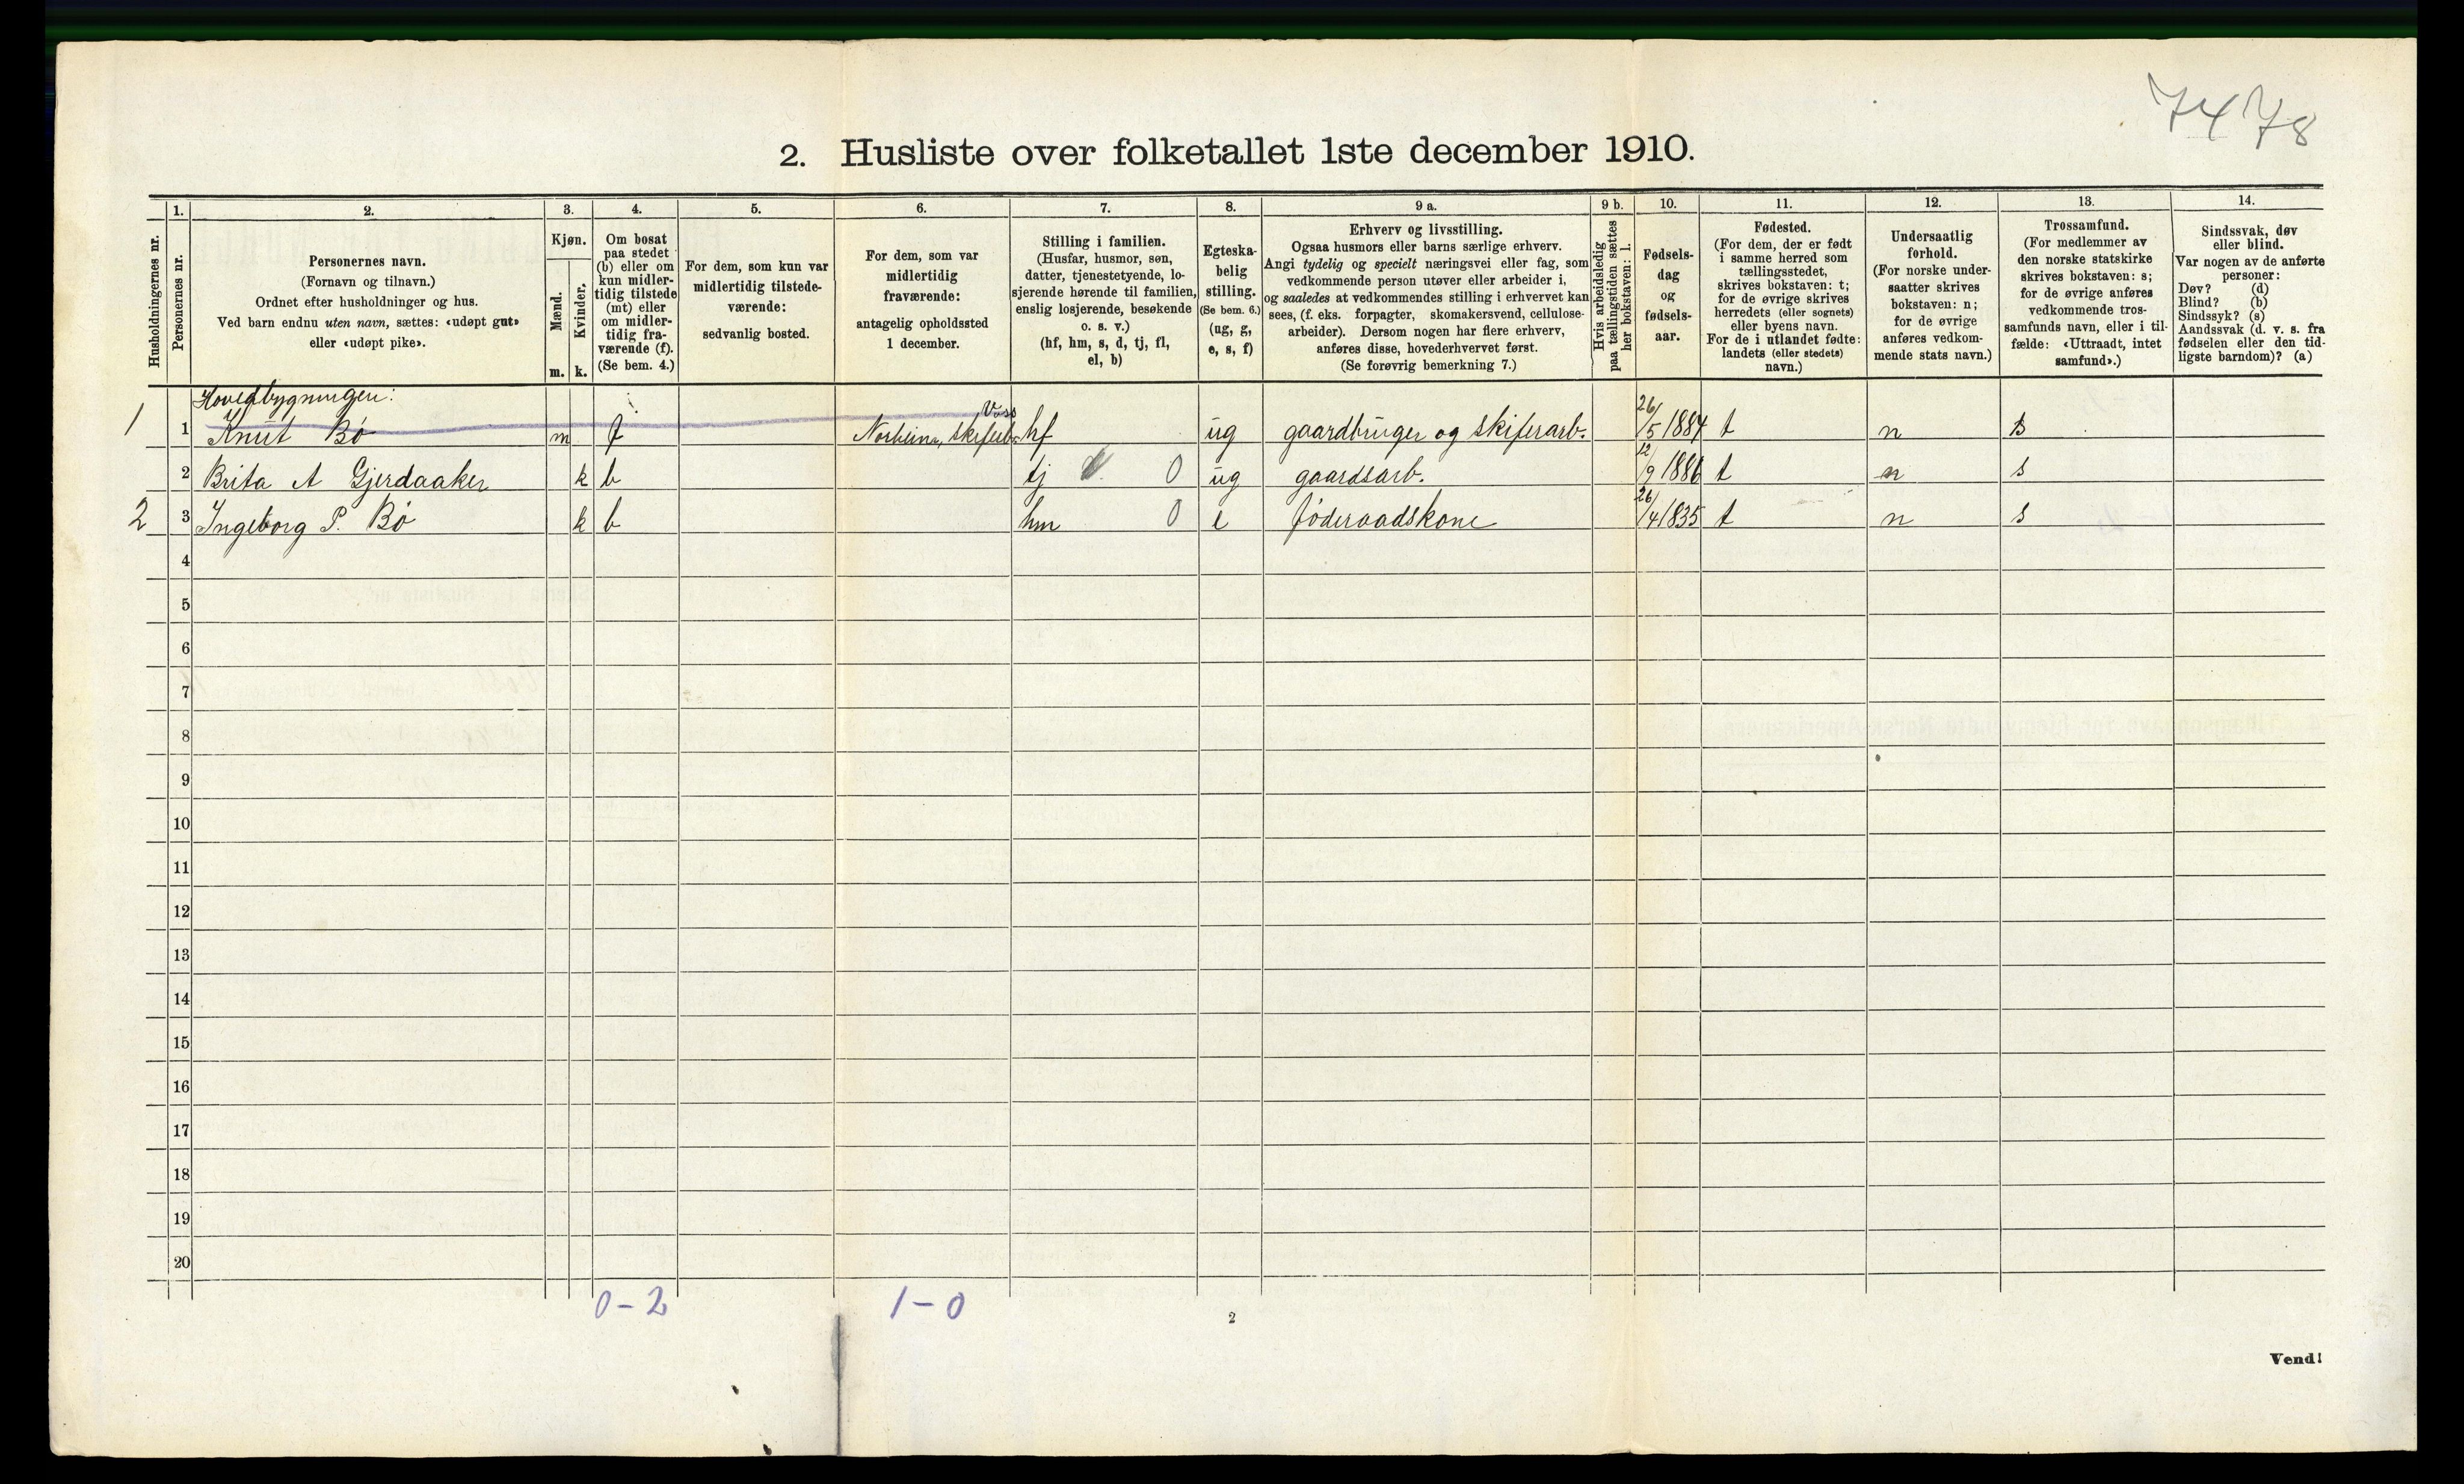 7478
2. Husliste over folketallet 1ste december 1910.
Husholdningernes nr.
1.
Personernes nr.
2.
Personernes navn.
(Fornavn og tilnavn.)
Ordnet efter husholdninger og hus.
Ved barn endnu uten navn, sættes: «udøpt gut»
eller «udøpt pike».
3.
Kjøn.
Mænd.
Kvinder.
m. k.
4.
Om bosat
paa stedet
(b) eller om
kun midler-
tidig tilstede
(mt) eller
om midler-
tidig fra-
værende (f).
(Se bem. 4.)
5.
For dem, som kun var
midlertidig tilstede-
værende:
sedvanlig bosted.
6.
For dem, som var
midlertidig
fraværende:
antagelig opholdssted
1 december.
7.
Stilling i familien.
(Husfar, husmor, søn,
datter, tjenestetyende, lo-
sjerende hørende til familien,
enslig losjerende, besøkende
o. s. v.)
(hf, hm, s, d, tj, fl,
el, b)
8.
Egteska-
belig
stilling.
(Se bem. 6.)
(ug, g,
e, s, f)
9 a.
Erhverv og livsstilling.
Ogsaa husmors eller barns særlige erhverv.
Angi tydelig og specielt næringsvei eller fag, som
vedkommende person utøver eller arbeider i,
og saaledes at vedkommendes stilling i erhvervet kan
sees, (f. eks. forpagter, skomakersvend, cellulose-
arbeider). Dersom nogen har flere erhverv,
anføres disse, hovederhvervet først.
(Se forøvrig bemerkning 7.)
9 b.
Hvis arbeidsledig
paa tællingstiden sættes
her bokstaven: l.
10.
Fødsels-
dag
og
fødsels-
aar.
11.
Fødested.
(For dem, der er født
i samme herred som
tællingsstedet,
skrives bokstaven: t;
for de øvrige skrives
herredets (eller sognets)
eller byens navn.
For de i utlandet fødte:
landets (eller stedets)
navn.)
12.
Undersaatlig
forhold.
(For norske under-
saatter skrives
bokstaven: n;
for de øvrige
anføres vedkom-
mende stats navn.)
13.
Trossamfund.
(For medlemmer av
den norske statskirke
skrives bokstaven: s;
for de øvrige anføres
vedkommende tros-
samfunds navn, eller i til-
fælde: «Uttraadt, intet
samfund».)
14.
Sindssvak, døv
eller blind.
Var nogen av de anførte
personer:
Døv? (d)
Blind? (b)
Sindssyk? (s)
Aandssvak (d. v. s. fra
fødselen eller den tid-
ligste barndom)? (a)
Hovedbygningen:
1 1 Knut Bø m f Voss hf ug gaardbruger og skiferarb. 26/5 1884 t n s
2 Brita A Gjerdaaker k b tj 0 ug gaardsarb. 12/9 1886 t n s
2 3 Ingeborg P. Bø k b hm 0 e føderaadskone 26/4 1835 t n s
4
5
6
7
8
9
10
11
12
13
14
15
16
17
18
19
20
0-2 1-0
2
Vend!